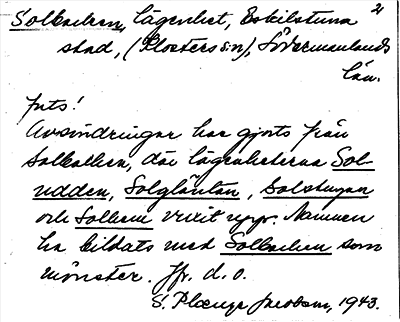 Solbacken, lägenhet, Eskilstuna 21
stad, (Klosters sn), Södermanlands
län.
Juts!
Avsöndringar har gjorts från
Solbacken, där lägenheterna Sol-
udden, Solgläntan, Solstugan
och Solhem vuxit upp. Namnen
ha bildats med Solbacken som
mönster. Jfr. d. o.
S. Jacobson, 1943.